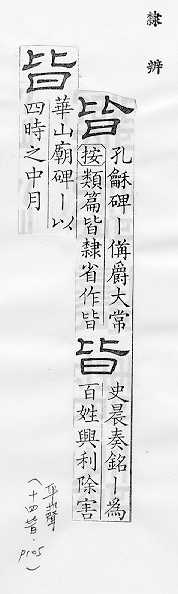 隸辨
皆
孔龢碑｜備爵大常
按類篇皆隸省作皆
皆
史晨奏銘｜為
百姓興利除害
皆
華山廟碑｜以
四時之中月
平聲
(十四皆.P105)